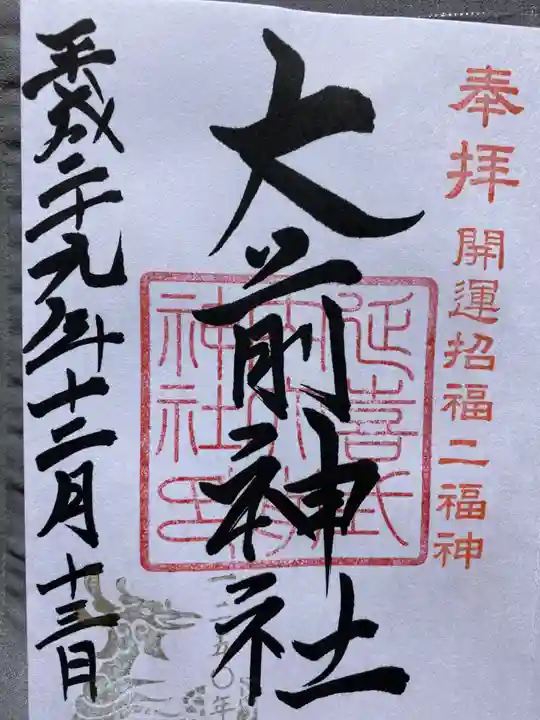 奉拝
開運招福二福神
大前神社
延喜式
内大前
神社印
平成二十九年十二月十三日
二五〇年